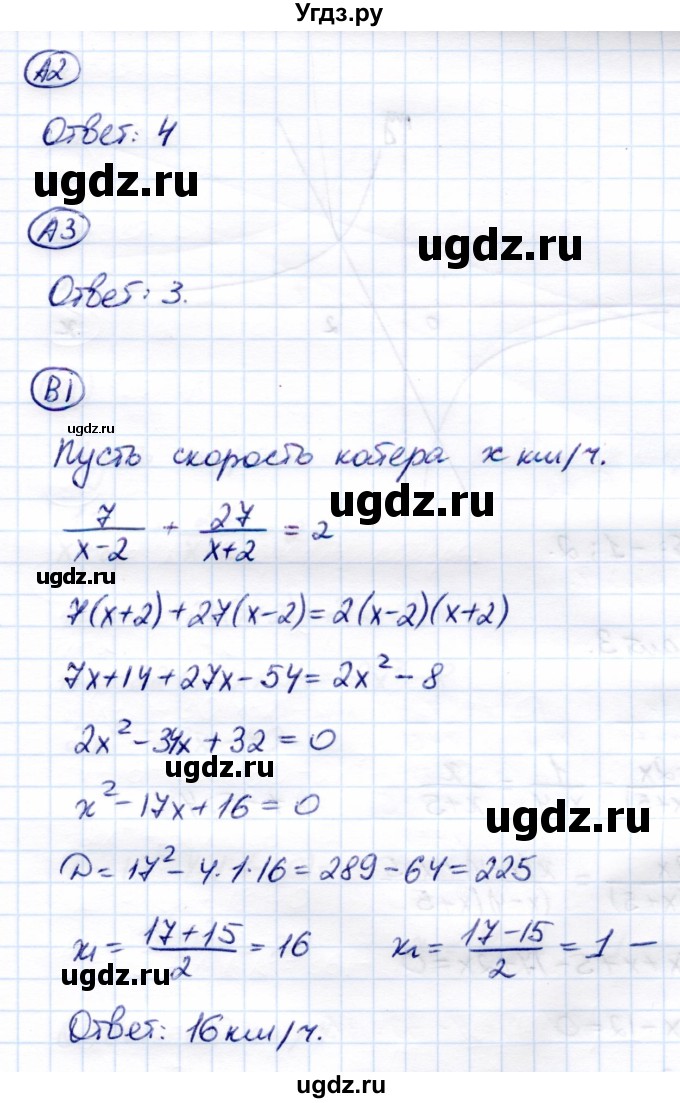 Угдз.ру
А2
Ответ: 4
ugdz.ru
ugdz.ru
А3
Ответ: 3.
В1
ugdz.ru
Пусть скорость катера x км/ч.
ugdz.ru
7/(x-2) + 27/(x+2) = 2
ugdz.ru
7(x+2)+27(x-2)=2(x-2)(x+2)
7x+14+27x-54=2x²-8
2x²-34x+32=0
ugdz.ru
x²-17x+16=0
ugdz.ru
D=17²-4·1·16=289-64=225
x₁=(17+15)/2=16 x₂=(17-15)/2=1 —
ugdz.ru
ugdz.ru
Ответ: 16 км/ч.
ugdz.ru